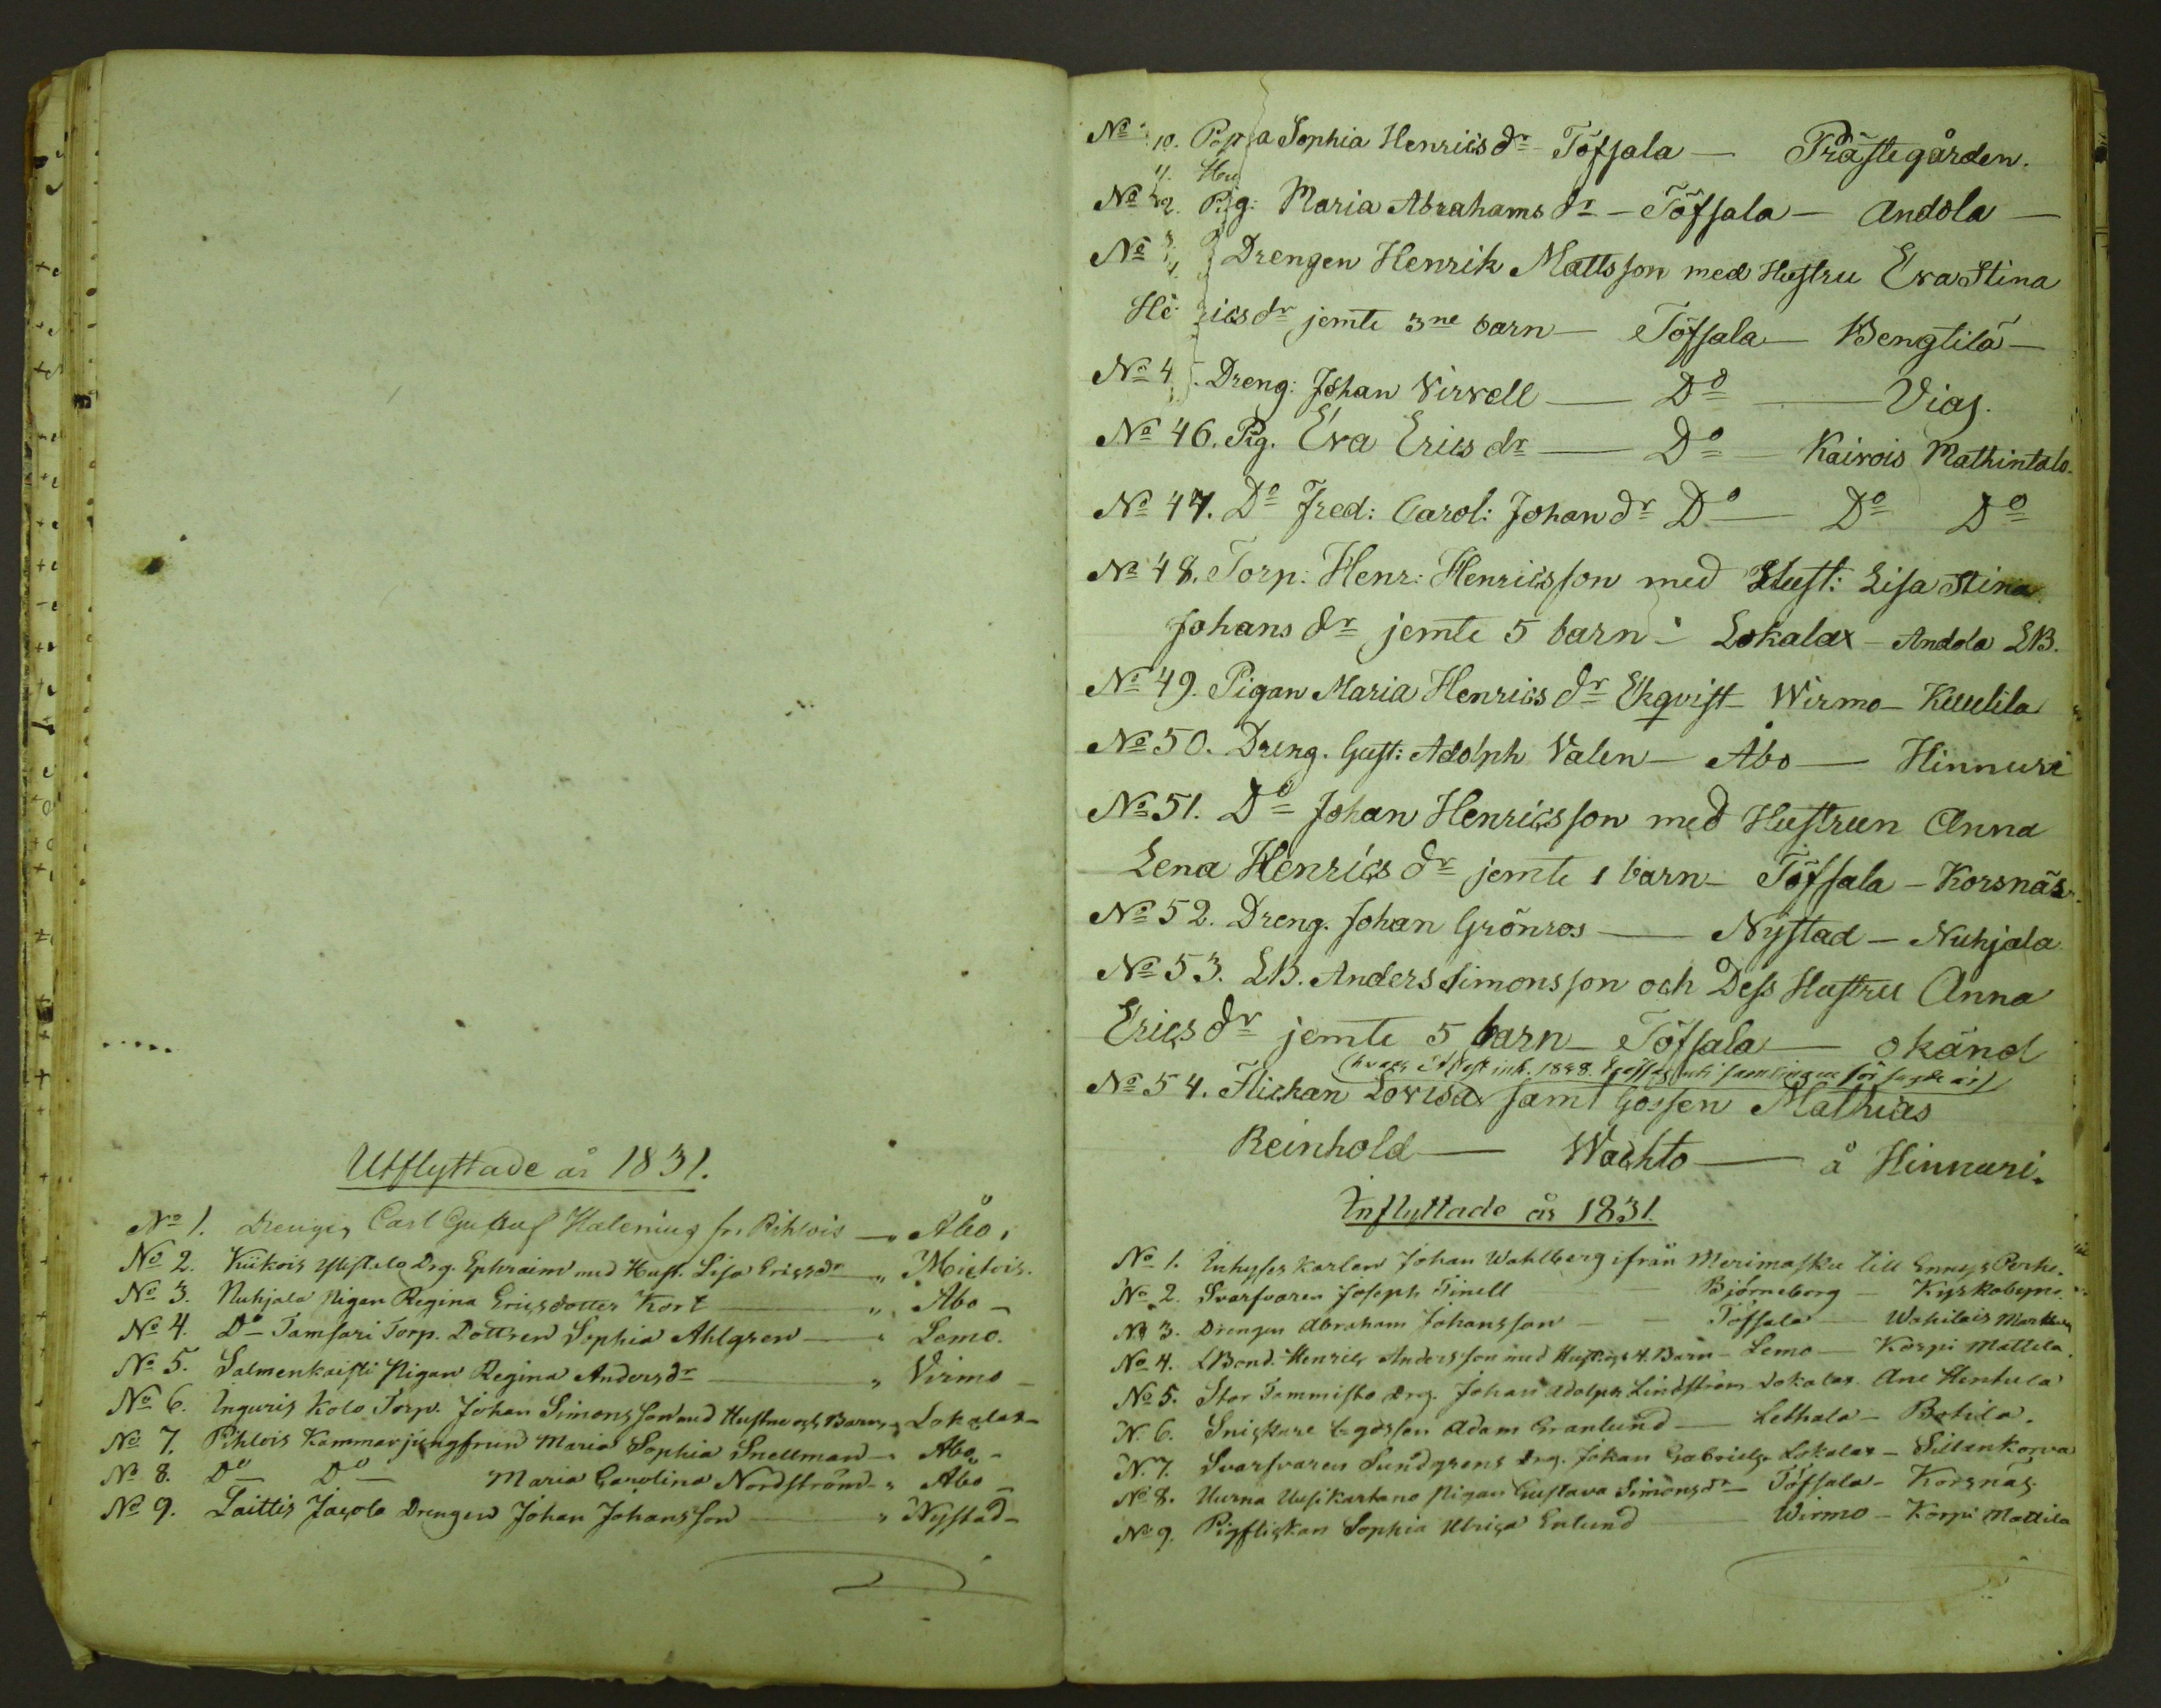 Utflyttade år 1831.
No 1. Drengen Carl Gustaf Halenius fr. Pihlois — Åbo.
No 2. Kiikois Ylistalo Drg. Ephraim med Hust. Lisa Ericsdr „ Mietois.
No 3. Nuhjala Pigan Regina Ericsdotter Kort — „ Åbo —
No 4. Do Tamsari Torp. Dottren Sophia Ahlgren — „ Lemo.
No 5. Salmenkaisti Pigan Regina Andersdr — „ Virmo —
No 6. Inguris Kolo Torp. Johan Simonsson med Hustru och Barn „ Lokalax —
No 7. Pihlois Kammarjungfrun Maria Sophia Snellman — Åbo —
No 8. Do Do Maria Carolina Nordström „ Åbo —
No 9. Laittis Jacola Drengen Johan Johansson — „ Nystad —
No 10. Sophia Henricsdr Töfsala — Prästegården.
11.
No 42. Pig: Maria Abrahamsdr — Töfsala — Andola —
No Drengen Henrik Mattsson med Hustru Eva Stina
He ricsdr jemte 3ne barn — Töfsala — Bengtilä —
No 4 . Dreng: Johan Virvell — Do — Viaj.
No 46. Pig. Eva Ericsdr — Do — Kairois Mathintalo.
No 47. Do Fred: Carol: Johandr Do — Do Do
No 48. Torp: Henr: Henricsson med Hust: Lisa Stina
Johansdr jemte 5 barn — Lokalax — Andola LB.
No 49. Pigan Maria Henricsdr Ekqvist — Wirmo — Kuulila
No 50. Dreng. Gust: Adolph Valen — Åbo — Hinnuri
No 51. Do Johan Henricsson med Hustrun Anna
Lena Henricsdr jemte 1 barn — Töfsala — Korsnäs.
No 52. Dreng. Johan Grönros — Nystad — Nuhjala
No 53. LB. Anders Simonsson och Dess Hustru Anna
Ericsdr jemte 5 barn — Töfsala — okänd
No 54. Flickan Lovisa samt Gossen Mathias
Reinhold — Wachto — å Hinnuri.
Inflyttade år 1831.
No 1. Inhyses Karlen Johan Wahlberg ifrån Merimasku till Ennys Perhe.
No 2. Svarfvaren Joseph Tinell Björneborg — Kyrkobyn.
No 3. Drengen Abraham Johansson — — Töfsala — Wahilais
No 4. LBond. Henric Andersson med Hust. och 4. Barn — Lemo — Korpi Mattila.
No 5. Stor Tammisto Drg. Johan Adolph Lindström Lokalax Ane Hentula
N. 6. Snickare Lgossen Adam Granlund — Lethala — Botila.
N. 7. Svarfvaren Sundgrens Drg. Johan Gabriels. Lokalax — Sillankorva
No 8. Uurna Uusikartano Pigan Gustava Simonsdr — Töfsala — Korsnäs.
No 9. Pigflickan Sophia Ulrica Enlund Wirmo — Korpi Mattila